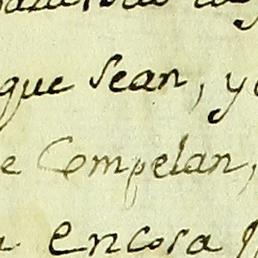 que sean, y
e Compelan,
encora